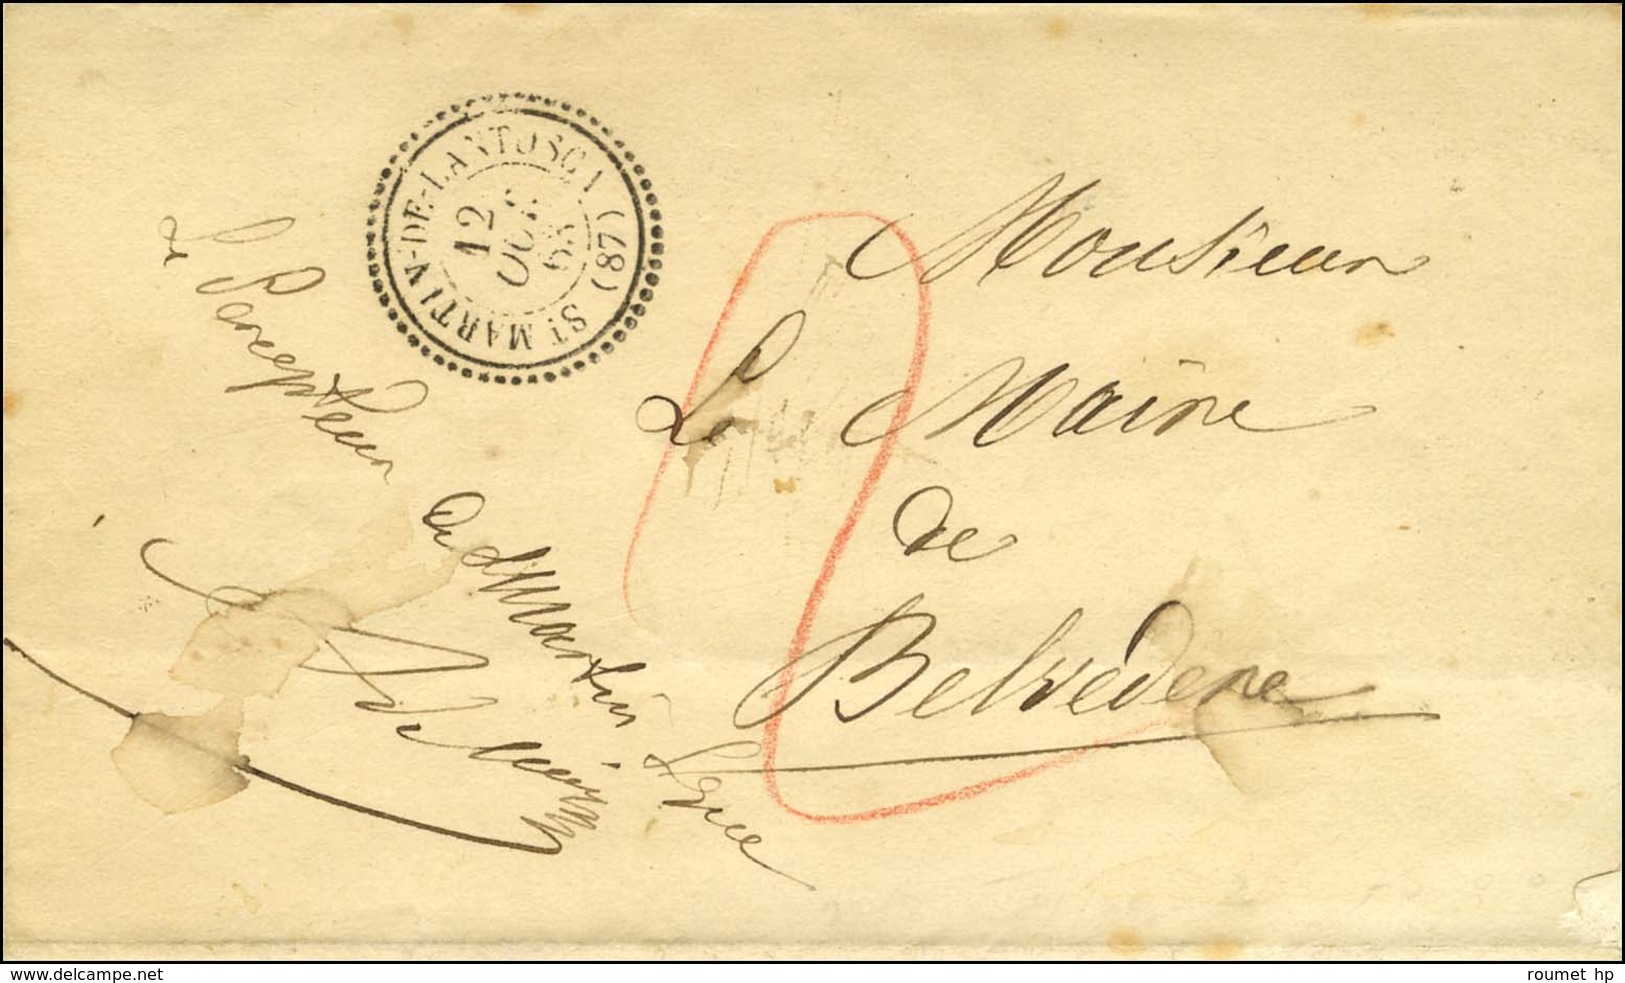 ST MARTIN-DE-LANTOSCA (87)
12
OCT
63
Monsieur
Le Maire
de
Belvédere
Le Percepteur
de St Martin
www.delcampe.net
roumet hp